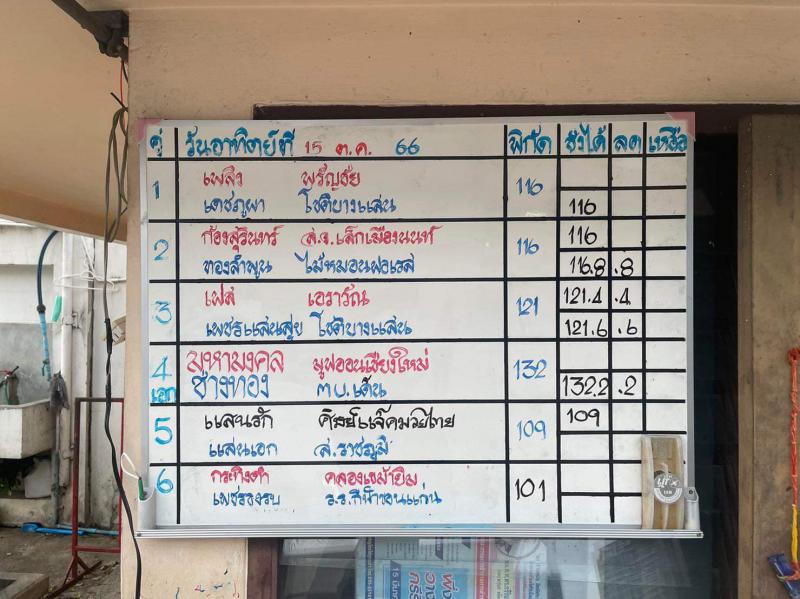 คู่ วันอาทิตย์ที่ 15 ต.ค. 66 พิกัด ชั่งได้ ลด เหลือ
1 เพลิง พรัญชัย 116
เดชภูผา โชติบางแสน 116
2 ก้องสุรินทร์ ส.จ.เล็กเมืองนนท์ 116 116
ทองลำพูน ไม้หมอนฟอเรส 116.8 .8
3 เฟส เอราวัณ 121 121.4 .4
เพชรแสนสุข โชติบางแสน 121.6 .6
4 มหามงคล มูฟออนเชียงใหม่ 132
เอก ช้างทอง 132.2 .2
5 แสนรัก ศิลย์แจ็คมวยไทย 109 109
แสนเอก ส.ราชภูมิ
6 กระทิงดำ 101
ร.ร.กีฬาขอนแก่น
15